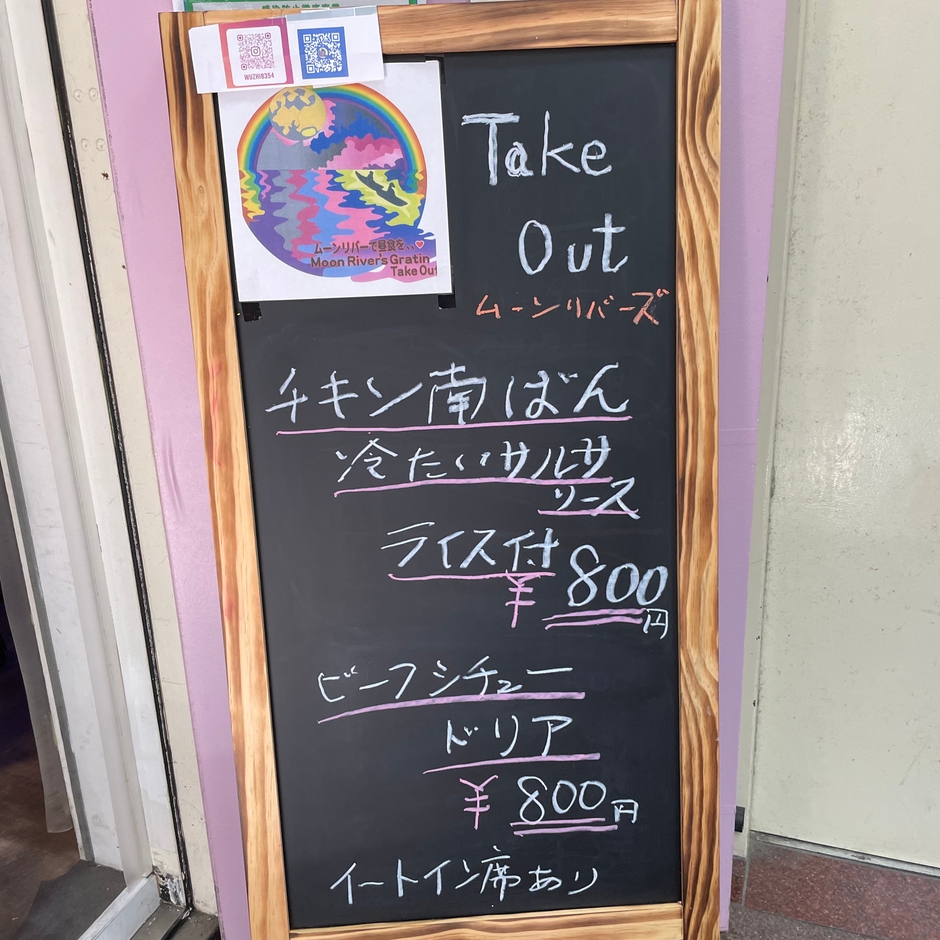 WUZHI8354
ムーンリバーで昼食を、、♡
Moon River's Gratin
Take Out
Take
Out
ムーンリバーズ
チキン南ばん
冷たいサルサ
ソース
ライス付
¥800円
ビーフシチュー
ドリア
¥800円
イートイン席あり